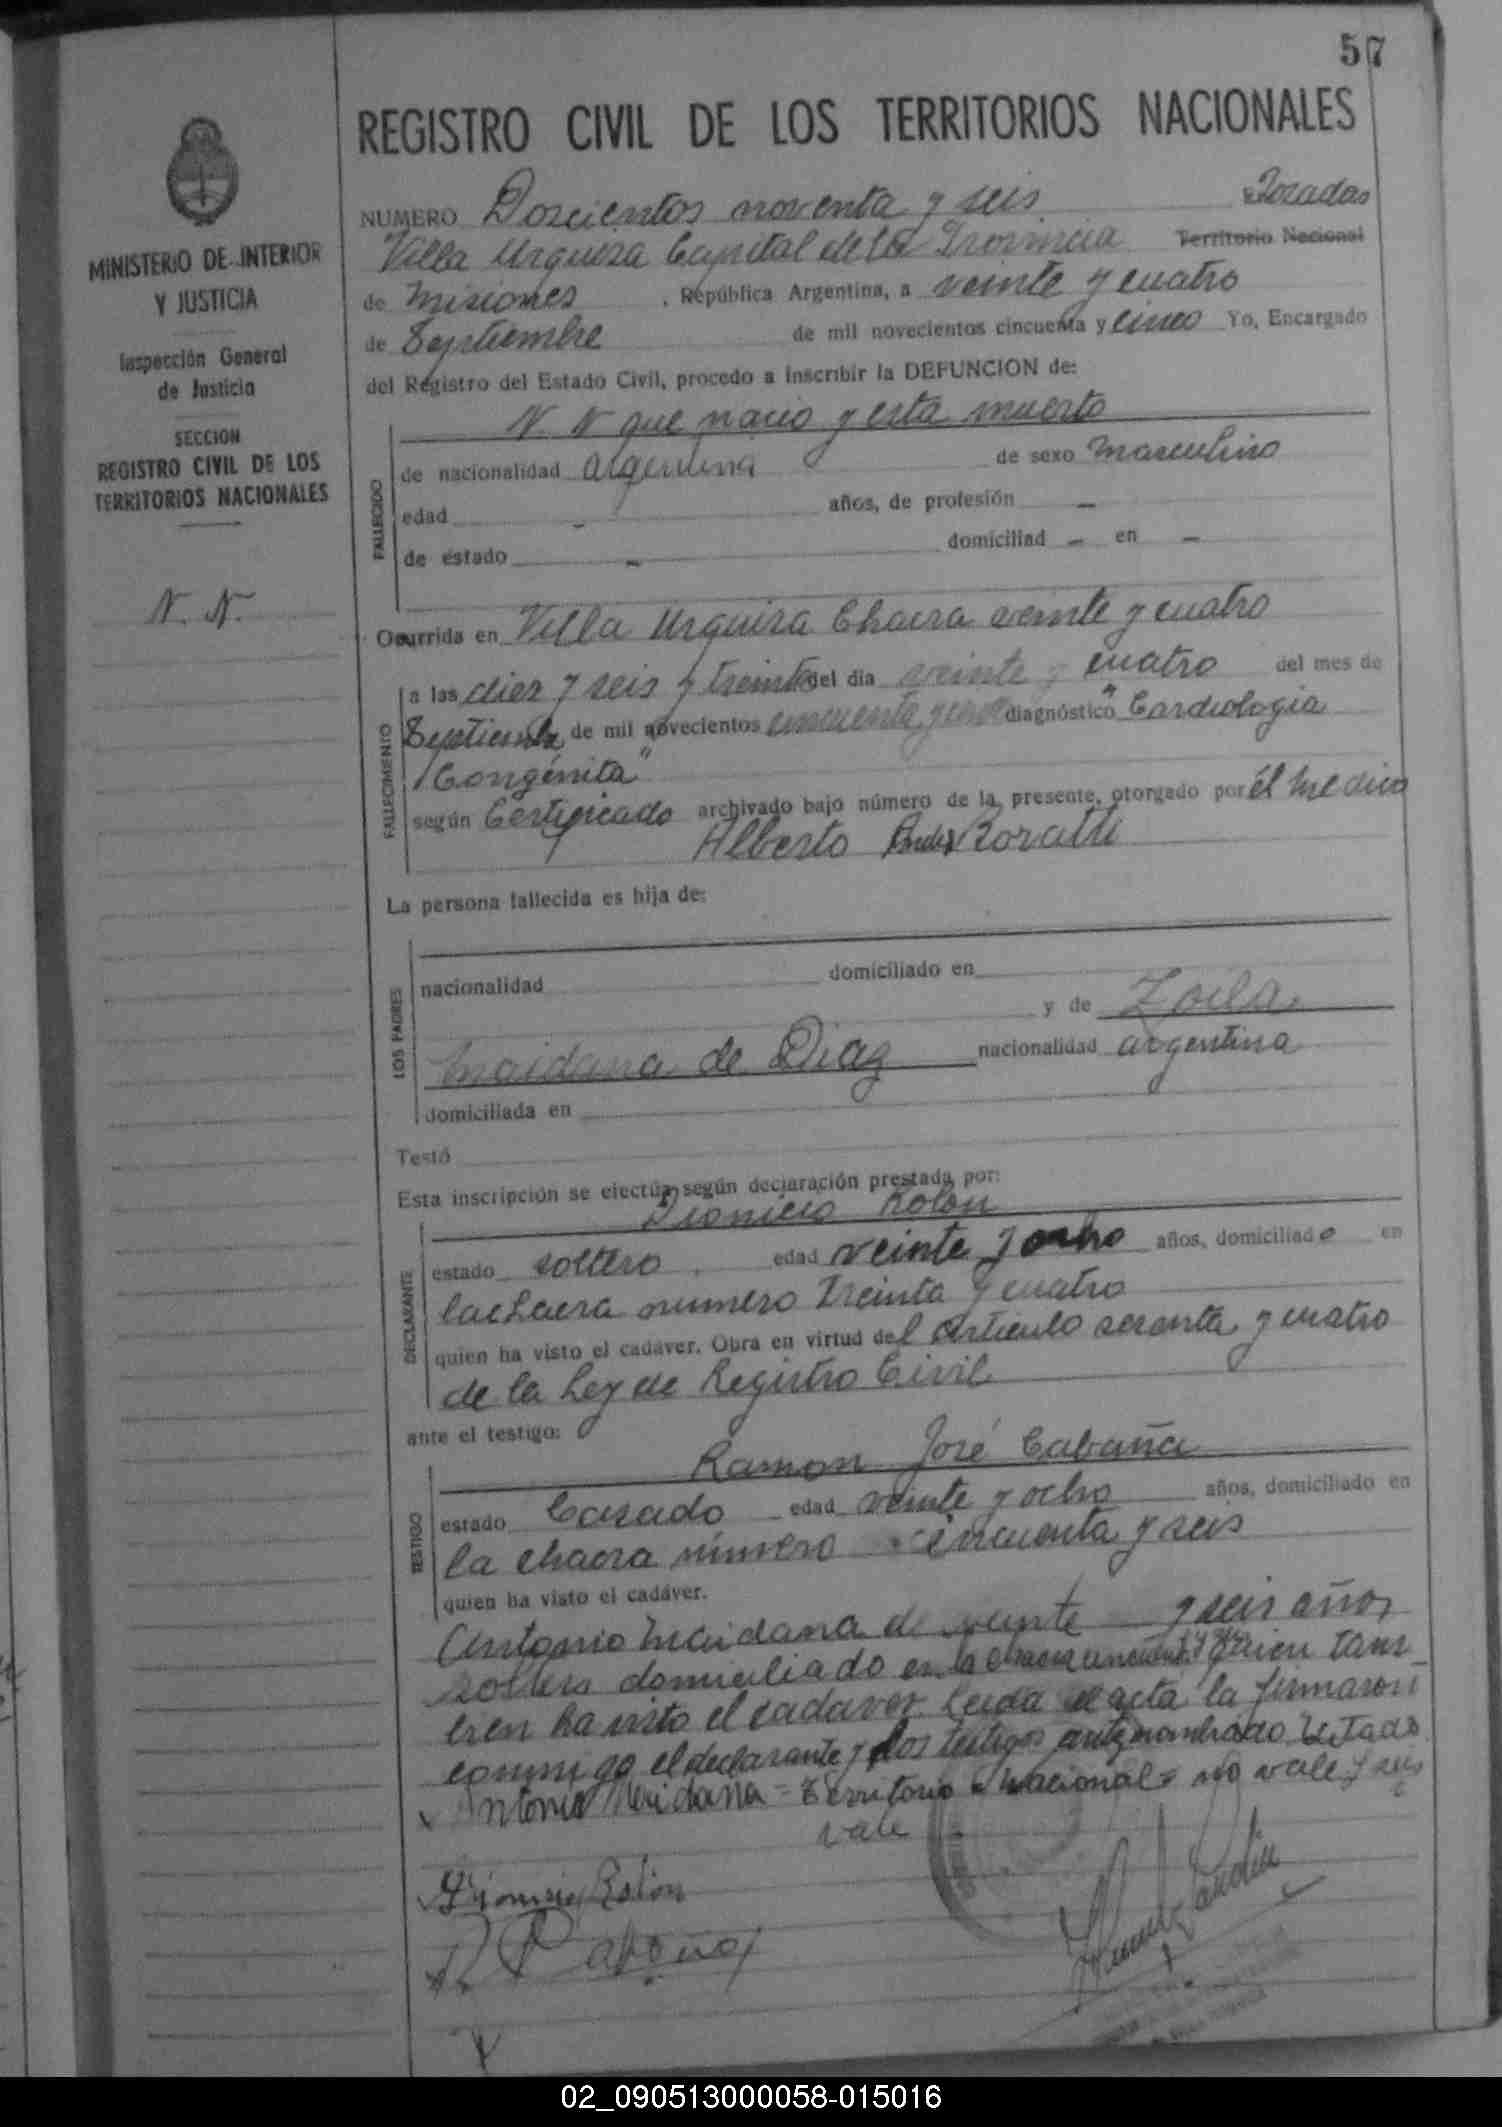 57
REGISTRO CIVIL DE LOS TERRITORIOS NACIONALES
MINISTERIO DE INTERIOR
Y JUSTICIA
Inspección General
de Justicia
SECCION
REGISTRO CIVIL DE LOS
TERRITORIOS NACIONALES
N. N.
NUMERO Doscientos noventa y seis Posadas
Villa Urquiza Capital de la Provincia Territorio Nacional
de Misiones , República Argentina, a veinte y cuatro
de Septiembre de mil novecientos cincuenta y cinco Yo, Encargado
del Registro del Estado Civil, procedo a inscribir la DEFUNCION de:
N. N que nacio y esta muerto
FALLECIDO
de nacionalidad argentina de sexo masculino
edad - años, de profesión -
de estado - domiciliad - en -
Ocurrida en Villa Urquiza Chacra veinte y cuatro
FALLECIMIENTO
a las diez y seis y treinta del dia veinte y cuatro del mes de
Septiembre de mil novecientos cincuenta y cinco diagnóstico "Cardiologia
Congénita"
según Certificado archivado bajo número de la presente, otorgado por él Medico
Alberto Roratti
La persona fallecida es hija de:
LOS PADRES
nacionalidad domiciliado en
y de Zoila
Maidana de Diaz nacionalidad argentina
domiciliada en
Testó
Esta inscripción se efectúa según declaración prestada por:
Dionicio Rolon
DECLARANTE
estado soltero edad veinte y ocho años, domiciliado en
la chacra numero Treinta y cuatro
quien ha visto el cadáver. Obra en virtud del articulo sesenta y cuatro
de la Ley de Registro Civil
ante el testigo:
Ramon José Cabaña
TESTIGO
estado Casado edad veinte y ocho años, domiciliado en
la chacra número cincuenta y seis
quien ha visto el cadáver.
Antonio Maidana de veinte y seis años
soltero domiciliado en la chacra quien tam
bien ha visto el cadaver. Leida el acta la firmaron
conmigo el declarante y los testigos antenombrado Testado
Antonio Maidana = Territorio = Nacional = no vale y seis
vale
Dionicio Rolon
R. Cabaña
02_090513000058-015016